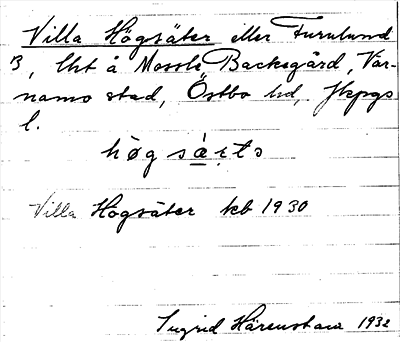 Villa Högsäter eller Furulund
B, lht å Mossle Backegård, Vär-
namo stad, Östbo hd, Jkpgs
l.
högsä̀ı̣tə
Villa Högsäter kb 1930
Ingrid Härenstam 1932